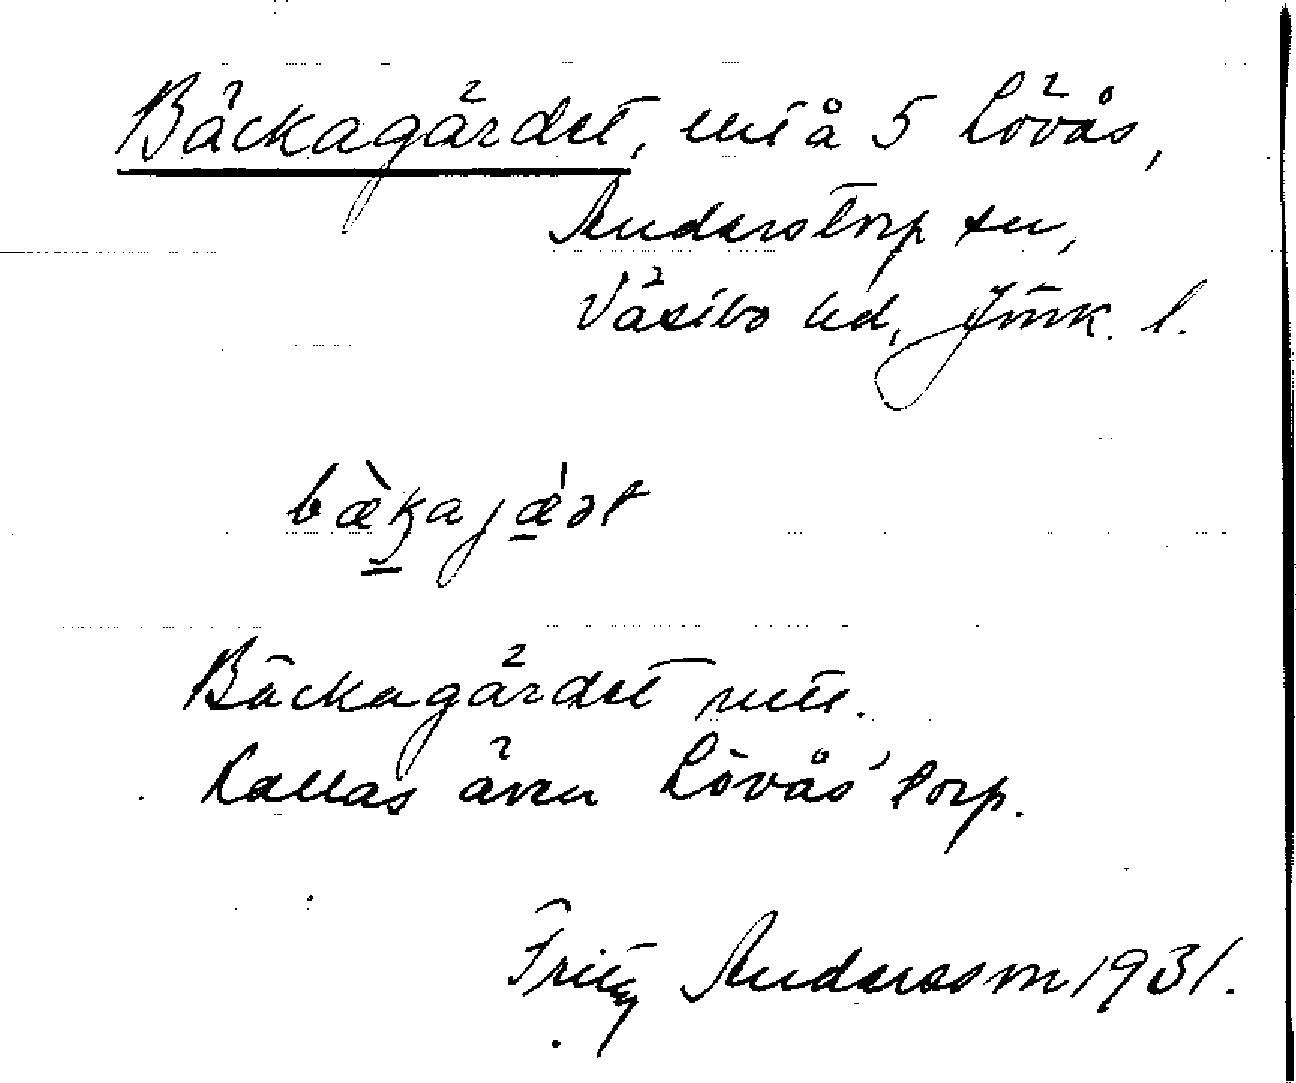 Bäckagärdet, ut å 5 Lövås,
Anderstorp sn,
Västbo hd, Jönk. l.
bæ̀kajæ̀ət
Bäckagärdet
Kallas även Lövås'torp.
Fritz Andersson 1931.